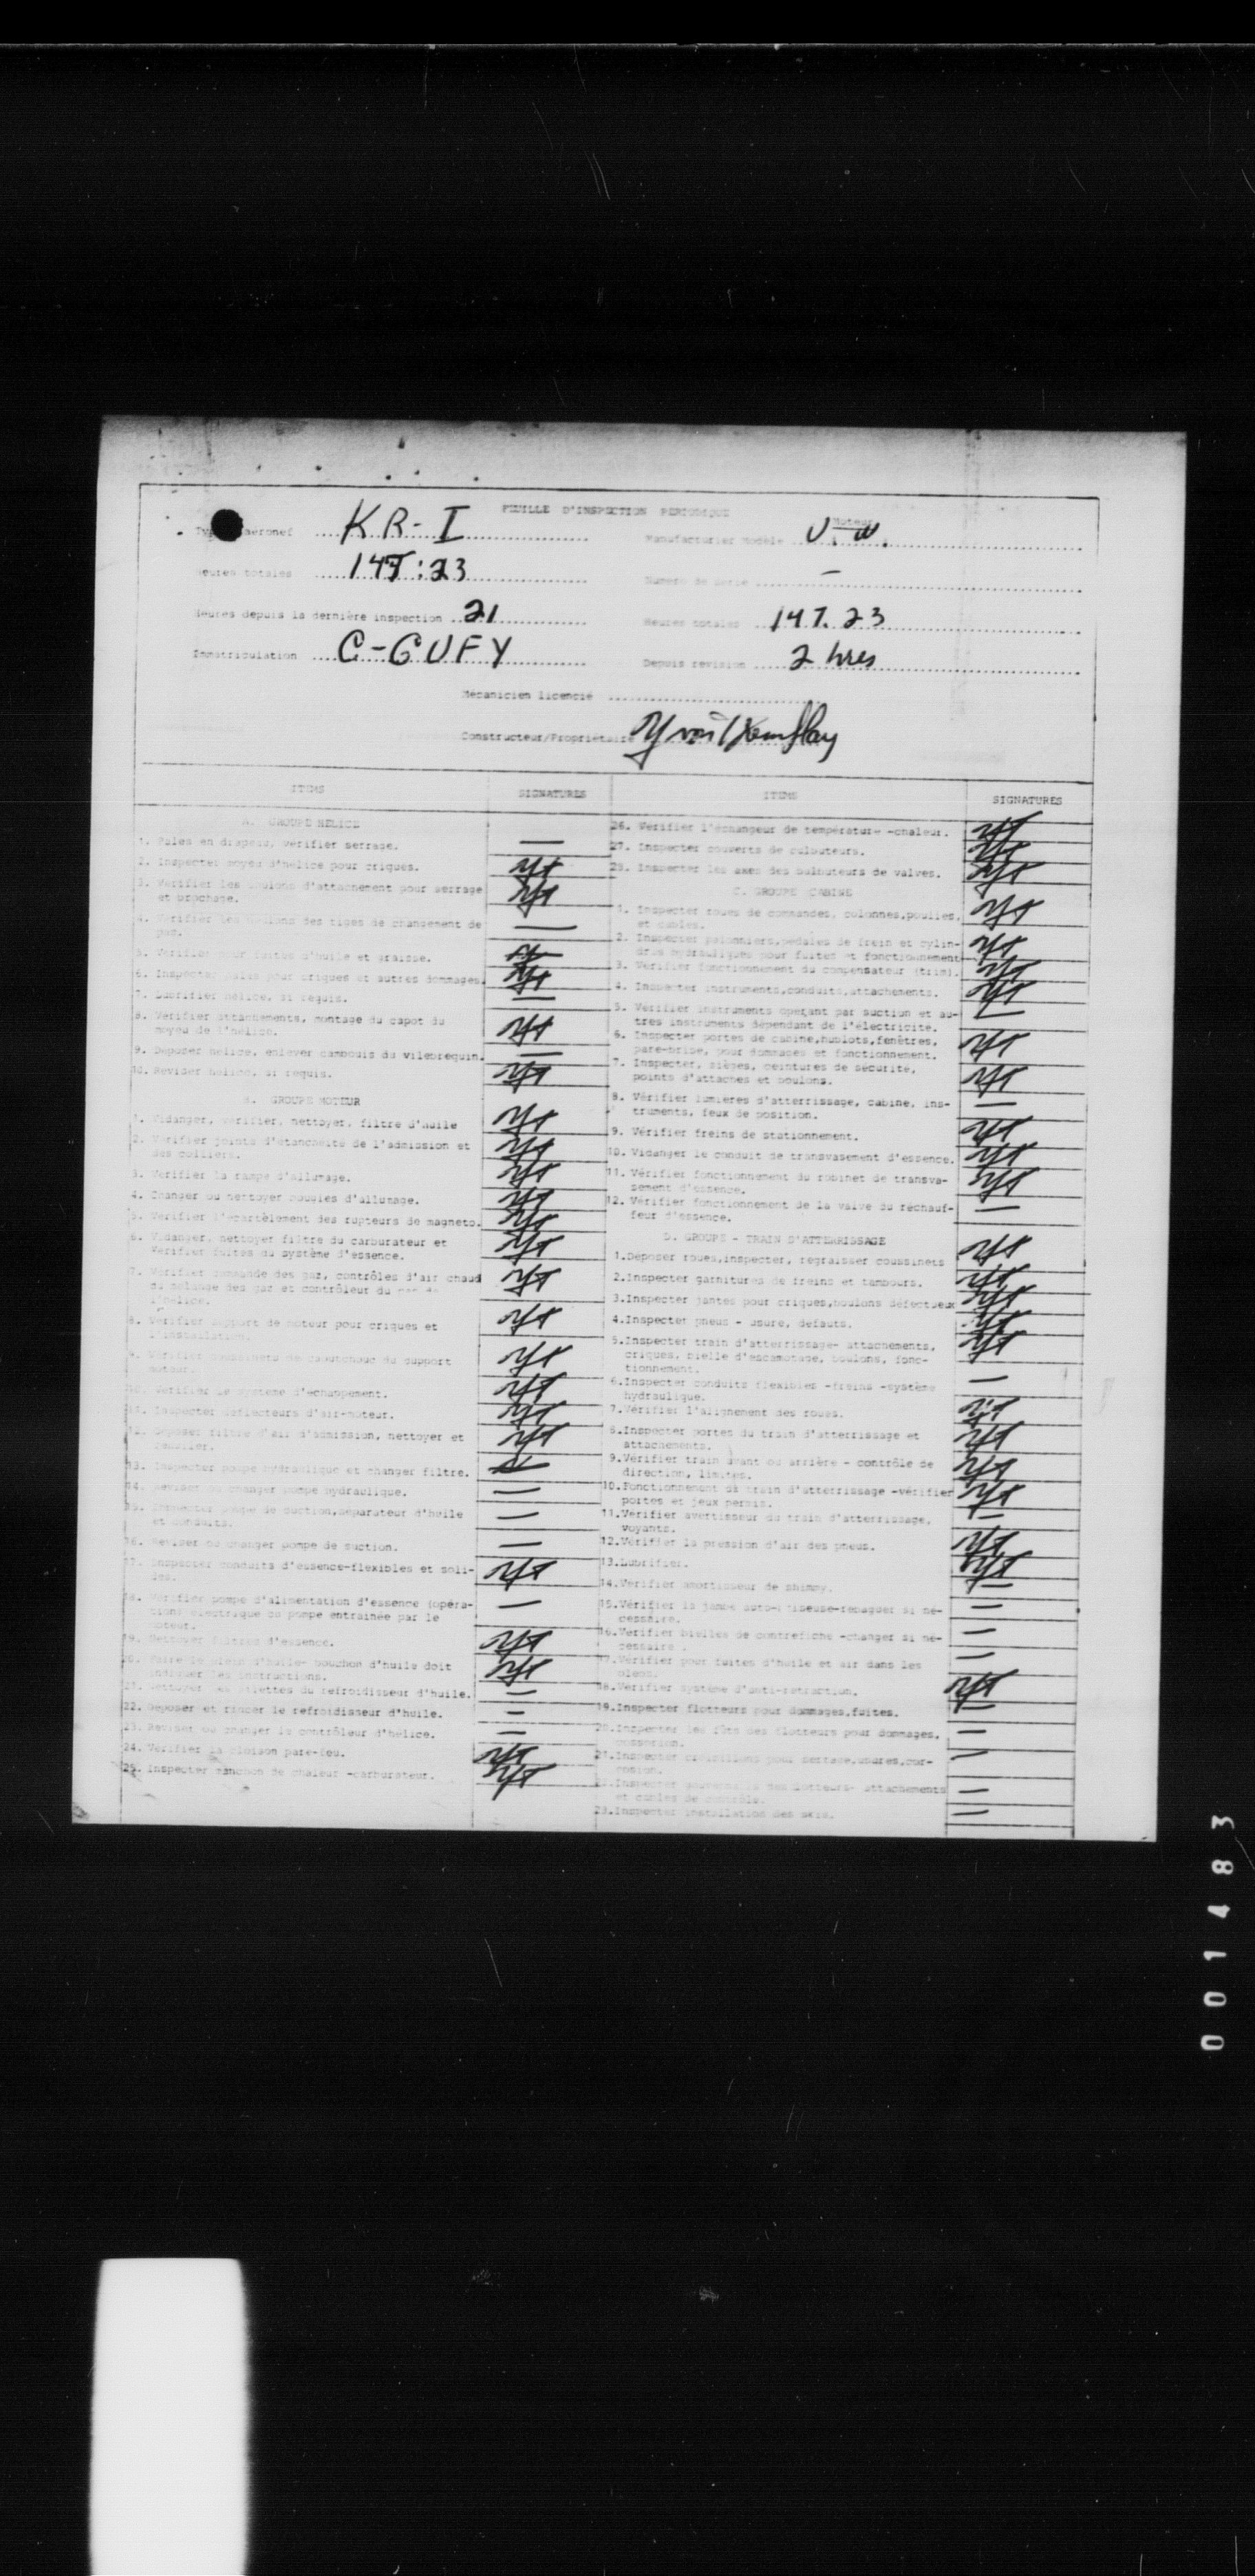 FEUILLE D'INSPECTION PERIODIQUE
Moteur
aéronef KR-I
Manufacturier modèle V.W.
Heures totales 147:23
Numero de serie —
Heures depuis la dernière inspection 21
Heures totales 147.23
Immatriculation C-GUFY
Depuis revision 2 hres
Mécanicien licencié
Constructeur/Propriétaire
ITEMS SIGNATURES
A. GROUPE HELICE
1. Pales en drapeau, vérifier serrage. —
2. Inspecter moyeu d'hélice pour criques.
3. Vérifier les boulons d'attachement pour serrage
et brochage.
4. Vérifier les boulons des tiges de changement de
pas. —
5. Vérifier pour fuites d'huile et graisse.
6. Inspecter pales pour criques et autres dommages.
7. Lubrifier hélice, si requis. —
8. Vérifier attachements, montage du capot du
moyeu de l'hélice.
9. Déposer hélice, enlever cambouis du vilebrequin. —
10. Reviser hélice, si requis.
B. GROUPE MOTEUR
1. Vidanger, vérifier, nettoyer, filtre d'huile
2. Vérifier joints d'étanchéité de l'admission et
des colliers.
3. Vérifier la rampe d'allumage.
4. Changer ou nettoyer bougies d'allumage.
5. Vérifier l'écartèlement des rupteurs de magneto.
6. Vidanger, nettoyer filtre du carburateur et
Vérifier fuites du système d'essence.
7. Vérifier commande des gaz, contrôles d'air chaud
du mélange des gaz et contrôleur du pas de
l'hélice.
8. Vérifier support de moteur pour criques et
l'installation.
9. Vérifier coussinets de caoutchouc du support
moteur.
10. Vérifier le système d'échappement.
11. Inspecter déflecteurs d'air-moteur.
12. Déposer filtre d'air d'admission, nettoyer et
13. Inspecter pompe hydraulique et changer filtre.
14. Reviser ou changer pompe hydraulique. —
15. Inspecter pompe de suction, séparateur d'huile
et conduits. —
16. Reviser ou changer pompe de suction. —
17. Inspecter conduits d'essence-flexibles et soli-
des.
18. Vérifier pompe d'alimentation d'essence (opéra-
tion) électrique ou pompe entrainée par le
moteur. —
19. Nettoyer filtres d'essence.
20. Faire le plein d'huile- bouchon d'huile doit
indiquer les instructions.
21. Nettoyer les ailettes du refroidisseur d'huile. —
22. Déposer et rincer le refroidisseur d'huile. —
23. Reviser ou changer le contrôleur d'hélice. —
24. Vérifier la cloison pare-feu.
25. Inspecter manchon de chaleur -carburateur.
ITEMS SIGNATURES
26. Vérifier l'échangeur de température -chaleur.
27. Inspecter couverts de culbuteurs.
28. Inspecter les axes des culbuteurs de valves.
C. GROUPE CABINE
1. Inspecter roues de commandes, colonnes, poulies,
et cables.
2. Inspecter palonniers, pédales de frein et cylin-
dres hydrauliques pour fuites et fonctionnement
3. Vérifier fonctionnement du compensateur (trim).
4. Inspecter instruments, conduits, attachements.
5. Vérifier instruments opérant par suction et au-
tres instruments dépendant de l'électricité. —
6. Inspecter portes de cabine, hublots, fenêtres,
pare-brise, pour dommages et fonctionnement.
7. Inspecter, sièges, ceintures de sécurité,
points d'attaches et boulons.
8. Vérifier lumières d'atterrissage, cabine, ins-
truments, feux de position. —
9. Vérifier freins de stationnement.
10. Vidanger le conduit de transvasement d'essence.
11. Vérifier fonctionnement du robinet de transva-
sement d'essence.
12. Vérifier fonctionnement de la valve du réchauf-
feur d'essence. —
D. GROUPE - TRAIN D'ATTERRISSAGE
1. Déposer roues, inspecter, regraisser coussinets
2. Inspecter garnitures de freins et tambours.
3. Inspecter jantes pour criques, boulons défectueux
4. Inspecter pneus - usure, défauts.
5. Inspecter train d'atterrissage- attachements,
criques, bielle d'escamotage, boulons, fonc-
tionnement.
6. Inspecter conduits flexibles -freins -système
hydraulique. —
7. Vérifier l'alignement des roues.
8. Inspecter portes du train d'atterrissage et
attachements.
9. Vérifier train avant ou arrière - contrôle de
direction, limites.
10. Fonctionnement du train d'atterrissage -vérifier
portes et jeux permis.
11. Vérifier avertisseur du train d'atterrissage,
voyants. —
12. Vérifier la pression d'air des pneus.
13. Lubrifier.
14. Vérifier amortisseur de shimmy. —
15. Vérifier la jambe
cessaire. —
16. Vérifier bielles de contrefiche -changer si né-
cessaire. —
17. Vérifier pour fuites d'huile et air dans les
18. Vérifier système d'anti-retraction.
19. Inspecter flotteurs pour dommages, fuites. —
20. Inspecter les fûts des flotteurs pour dommages,
corrosion. —
21. Inspecter croisillons pour serrage, usures, cor-
rosion. —
22. Inspecter gouvernails des flotteurs- attachements
et cables de contrôle. —
23. Inspecter installation des skis. —
001483